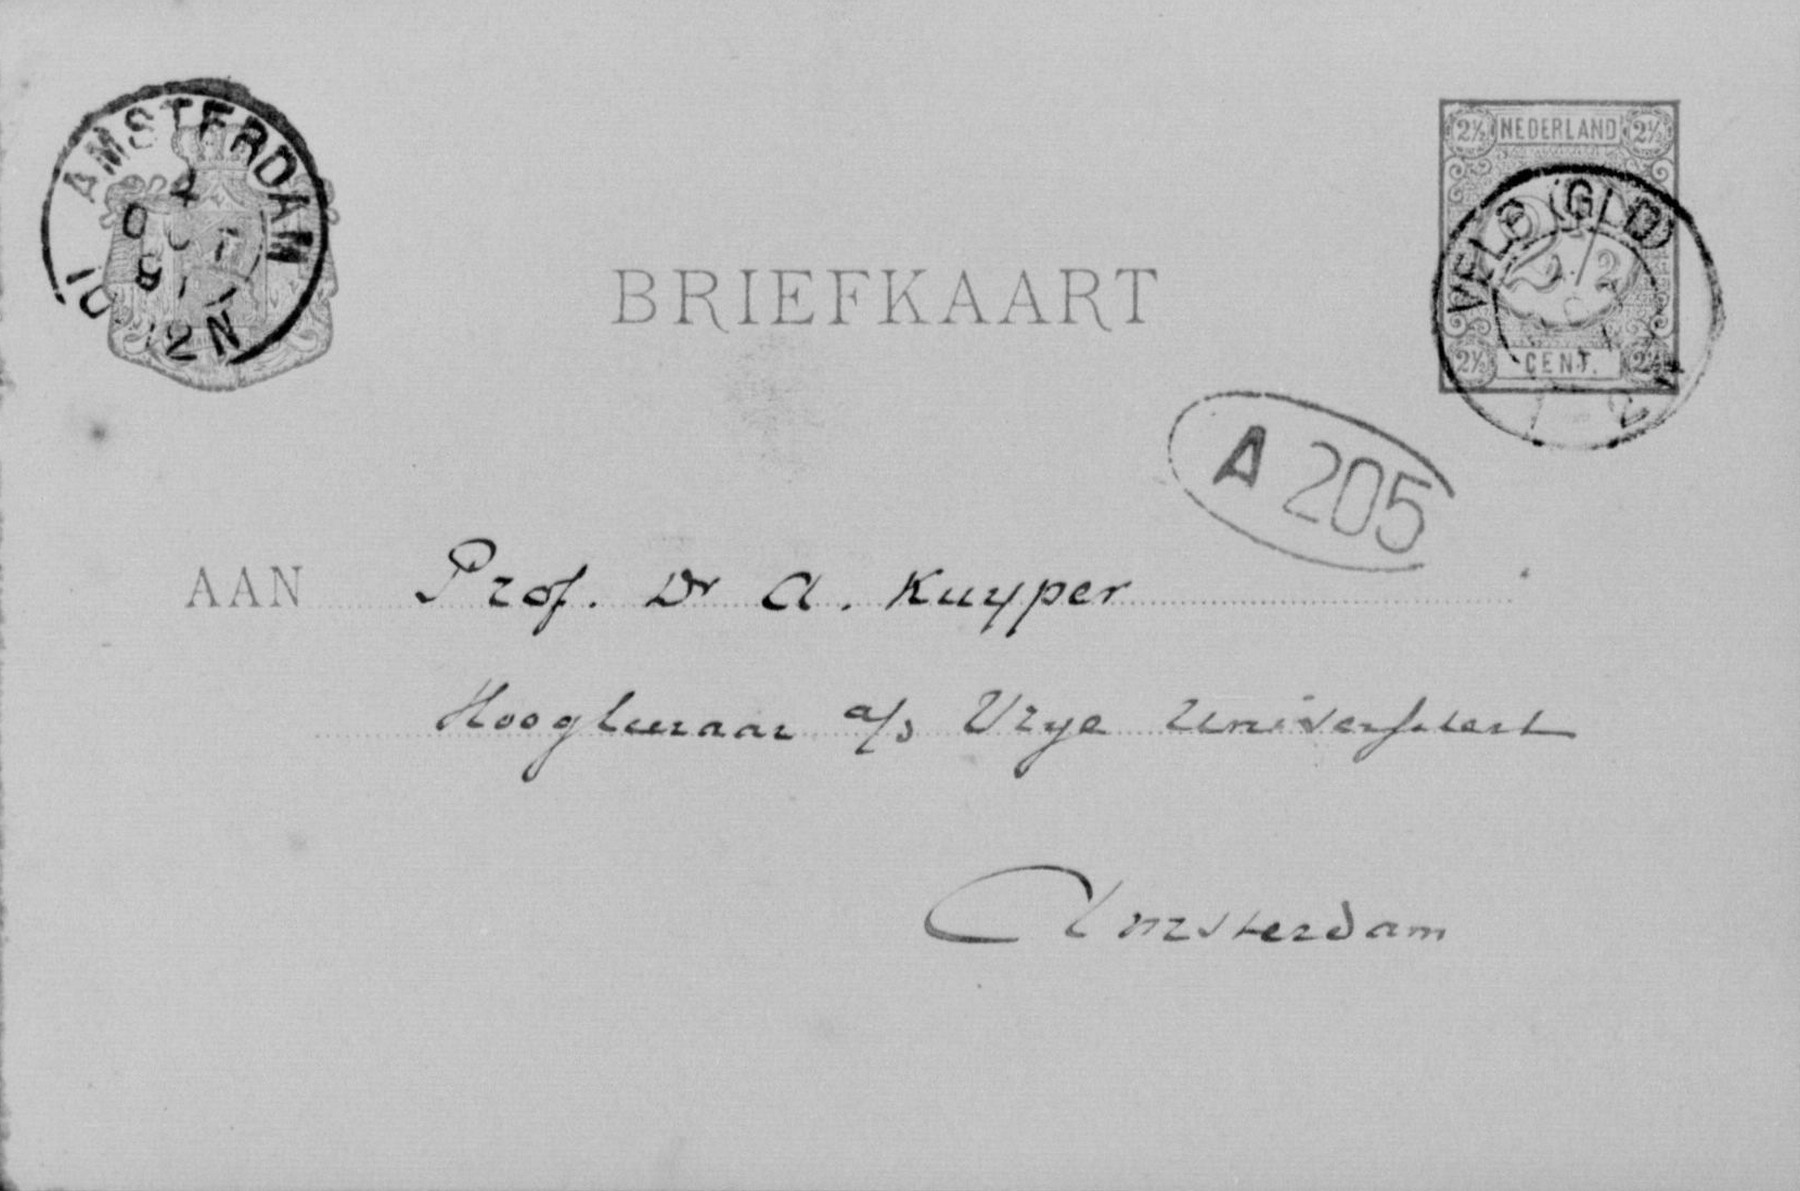 AMSTERDAM
4
OCT
10-12N
2½ NEDERLAND 2½
VELP (GLD)
2½
2½ CENT. 2½
BRIEFKAART
A 205
AAN Prof. Dr A. Kuyper
Hoogleeraar a/d Vrye Universiteit
Amsterdam